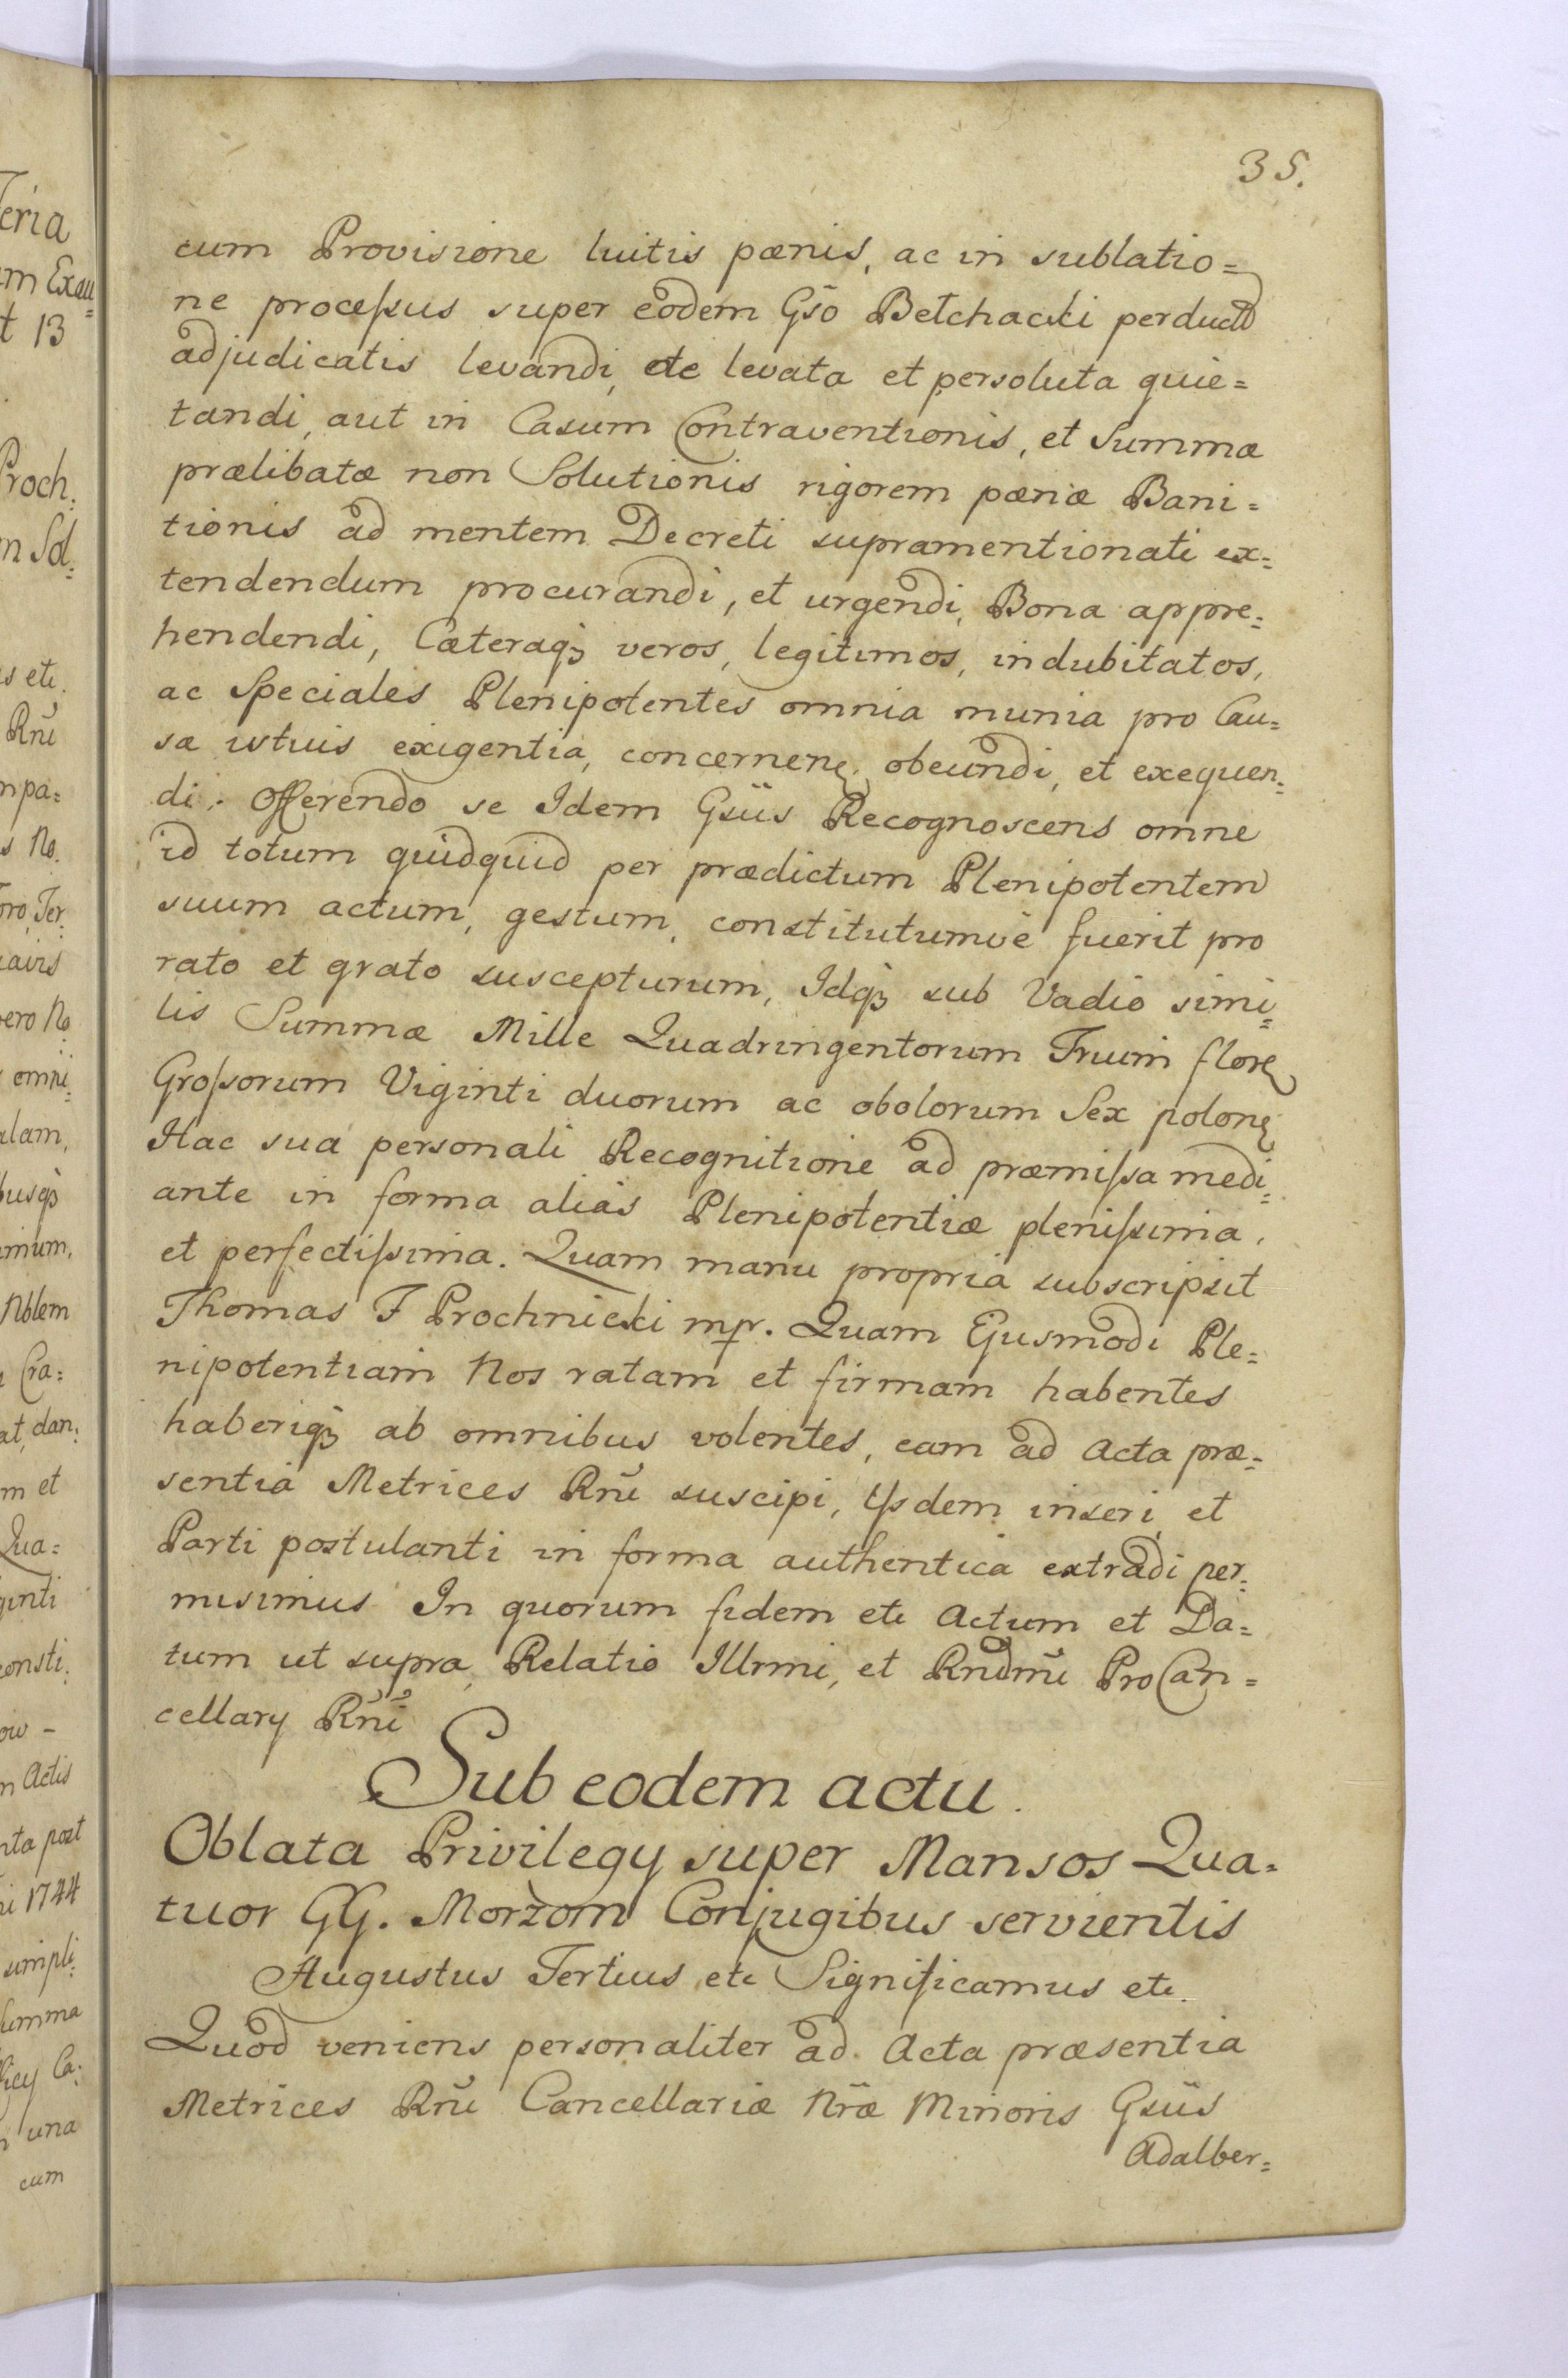 35.
cum Provisione luitis pænis, ac in sublatio=
ne processus super eodem Gso Bełchacki perducto
adjudicatis levandi, de levata et persoluta quie=
tandi, aut in Casum Contraventionis, et Summæ
prælibatæ non Solutionis rigorem pænæ Bani=
tionis ad mentem Decreti supramentionati ex=
tendendum procurandi, et urgendi, Bona appre=
hendendi, Cæteraqꝫ veros, legitimos, indubitatos,
ac Speciales Plenipotentes omnia munia pro Cau=
sæ istuis exigentia, concernenꝫ obeundi, et exequen=
di. Offerendo se Idem Gsus Recognoscens omne
id totum quidquid per prædictum Plenipotentem
suum actum, gestum, constitutumve fuerit pro
rato et grato suscepturum, Idqꝫ sub Vadio simi=
lis Summæ Mille Quadringentorum Trium florꝫ
Grossorum Viginti duorum ac obolorum Sex polonꝫ
Hac sua personali Recognitione ad præmissa medi=
ante in forma alias Plenipotentiæ plenissima,
et perfectissima. Quam manu propria subscripsit
Thomas F Prochnicki mpr. Quam Ejusmodi Ple=
nipotentiam Nos ratam et firmam habentes
haberiqꝫ ab omnibus volentes, eam ad Acta præ=
sentia Metrices Rnĩ suscipi, Ijsdem inseri, et
Parti postulanti in forma authentica extradi per=
misimus In quorum fidem etc Actum et Da=
tum ut supra Relatio Illrmi, et Rndmĩ ProCan=
cellary Rnĩ
Sub eodem actu.
Oblata Privilegy super Mansos Qua=
tuor GG. Morżom Conjugibus servientis
Augustus Tertius etc Significamus etc.
Quod veniens personaliter ad Acta præsentia
Metrices Rnĩ Cancellariæ Nræ Minoris Gsus
Adalber=
eria
m Exau=
t 13
Proch:
m Sol=
s etc.
Rnĩ
mpa=
s No.
oro, Ter=
ero No
alam,
busqꝫ
imum,
Nblem
Cra=
at, dan:
m et
Qua=
ginti
consti:
ow -
m Actis
nta post
ni 1744
simpli:
Summa
una
cum